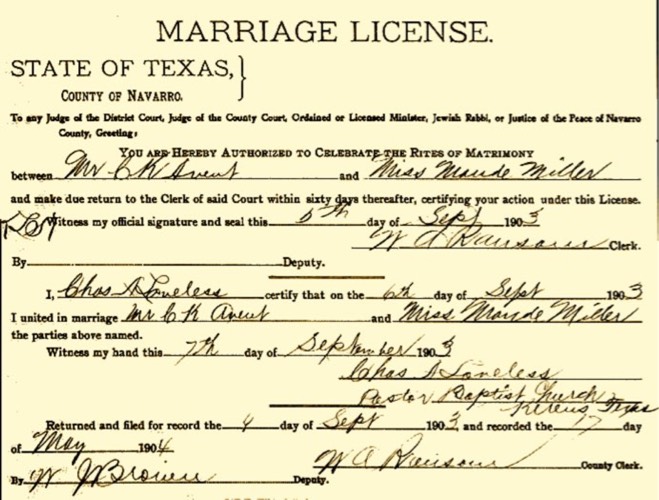 MARRIAGE LICENSE.
STATE OF TEXAS,
COUNTY OF NAVARRO.
To any Judge of the District Court, Judge of the County Court, Ordained or Licensed Minister, Jewish Rabbi, or Justice of the Peace of Navarro
County, Greeting:
YOU ARE HEREBY AUTHORIZED TO CELEBRATE THE RITES OF MATRIMONY
between Mr C K Avent and Miss Maude Miller
and make due return to the Clerk of said Court within sixty days thereafter, certifying your action under this License.
Witness my official signature and seal this 5th day of Sept 1903
W A Ransom Clerk.
By Deputy.
I, Chas A Loveless certify that on the 6th day of Sept 1903
I united in marriage Mr C K Avent and Miss Maude Miller
the parties above named.
Witness my hand this 7th day of September 1903
Chas A Loveless
Pastor Baptist Church
Kerens, Texas
Returned and filed for record the day of Sept 1903 and recorded the 17 day
of May 1904
W A Ransom County Clerk.
By W J Brown Deputy.